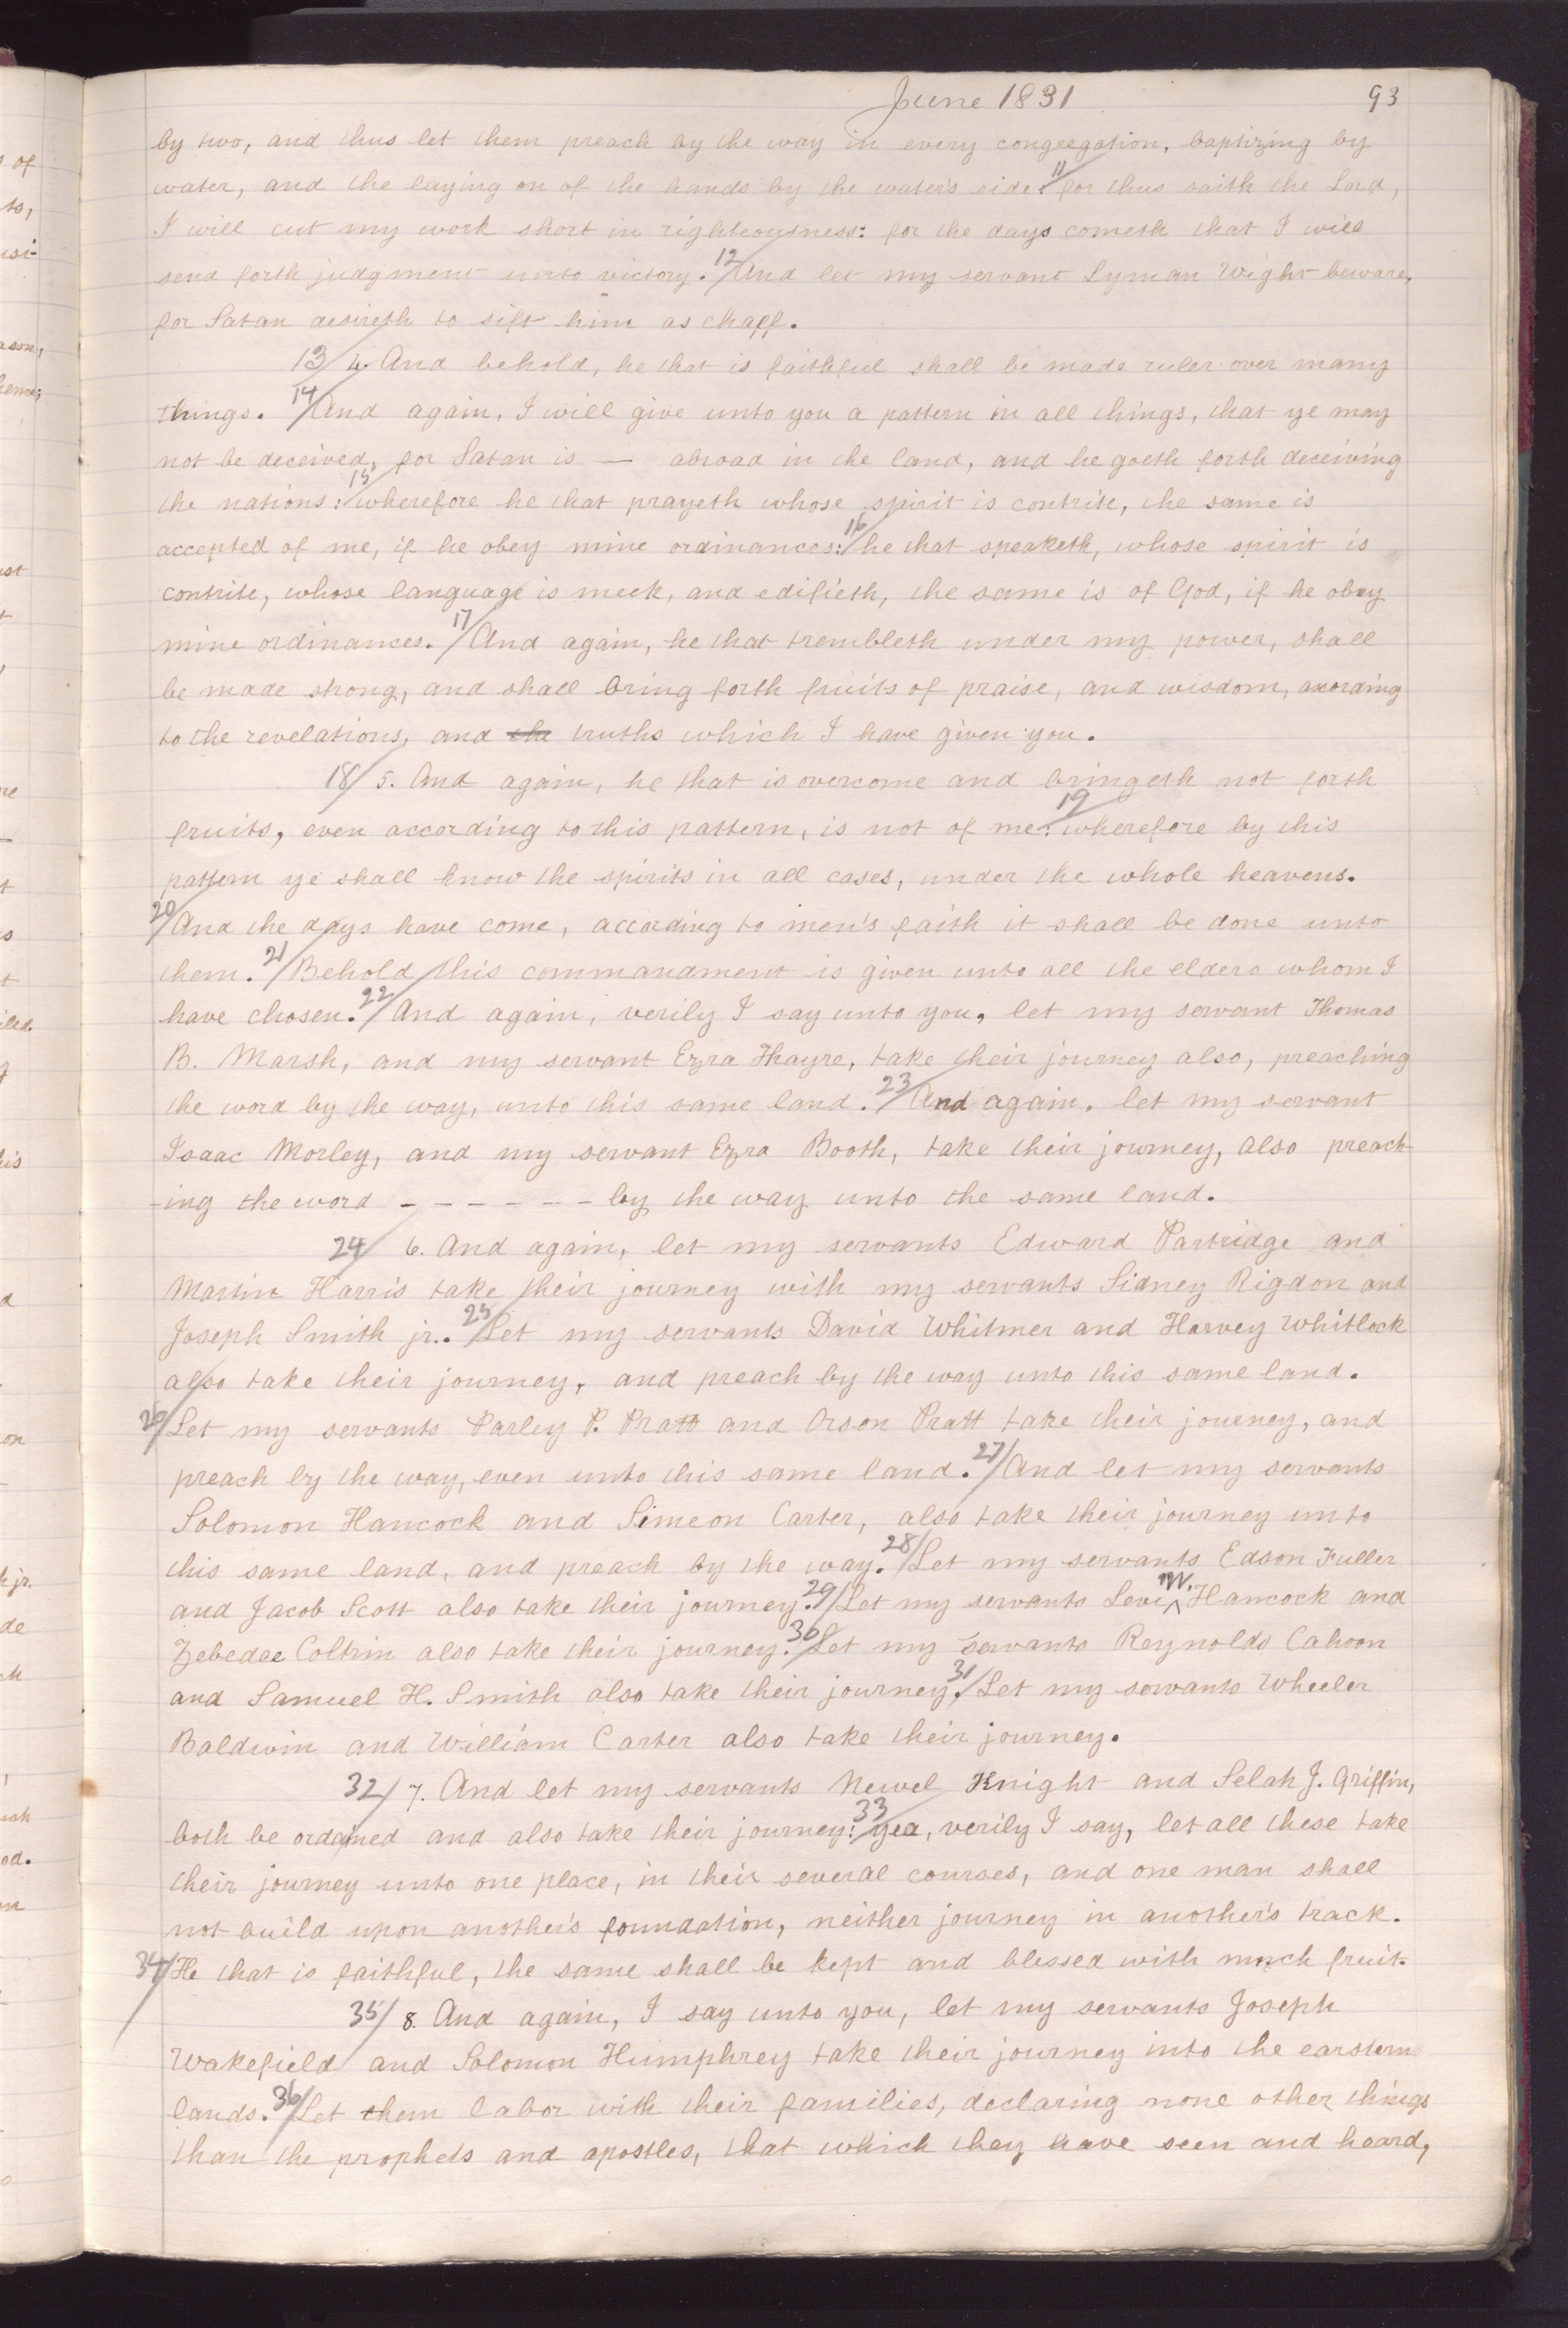 June 1831 93
by two, and thus let them preach by the way in every congregation, baptizing by
water, and the laying on of the hands by the water's side: 11/ for thus saith the Lord,
I will cut my work short in righteousness: for the days cometh that I will
send forth judgment unto victory. 12/ And let my servant Lyman Wight beware,
for Satan desireth to sift him as chaff.
13/ 4. And behold, he that is faithful shall be made ruler over many
things. 14/ And again, I will give unto you a pattern in all things, that ye may
not be deceived, for Satan is — abroad in the land, and he goeth forth deceiving
the nations: 15/ wherefore he that prayeth whose spirit is contrite, the same is
accepted of me, if he obey mine ordinances: 16/ he that speaketh, whose spirit is
contrite, whose language is meek, and edifieth, the same is of God, if he obey
mine ordinances. 17/ And again, he that trembleth under my power, shall
be made strong, and shall bring forth fruits of praise, and wisdom, according
to the revelations, and the truths which I have given you.
18/ 5. And again, he that is overcome and bringeth not forth
fruits, even according to this pattern, is not of me: 19/ wherefore by this
pattern ye shall know the spirits in all cases, under the whole heavens.
20/ And the days have come, according to men's faith it shall be done unto
them. 21/ Behold this commandment is given unto all the elders whom I
have chosen. 22/ And again, verily I say unto you, let my servant Thomas
B. Marsh, and my servant Ezra Thayre, take their journey also, preaching
the word by the way, unto this same land. 23/ And again, let my servant
Isaac Morley, and my servant Ezra Booth, take their journey, also preach-
-ing the word - - - - - - by the way unto the same land.
24/ 6. And again, let my servants Edward Partridge and
Martin Harris take their journey with my servants Sidney Rigdon and
Joseph Smith jr.. 25/ Let my servants David Whitmer and Harvey Whitlock
also take their journey, and preach by the way unto this same land.
26/ Let my servants Parley P. Pratt and Orson Pratt take their journey, and
preach by the way, even unto this same land. 27/ And let my servants
Solomon Hancock and Simeon Carter, also take their journey unto
this same land, and preach by the way. 28/ Let my servants Edson Fuller
and Jacob Scott also take their journey. 29/ Let my servants Levi W. Hancock and
Zebedee Coltrin also take their journey. 30/ Let my servants Reynolds Cahoon
and Samuel H. Smith also take their journey. 31/ Let my servants Wheeler
Baldwin and William Carter also take their journey.
32/ 7. And let my servants Newel Knight and Selah J. Griffin,
both be ordained and also take their journey: 33/ yea, verily I say, let all these take
their journey unto one place, in their several courses, and one man shall
not build upon another's foundation, neither journey in another's track.
34/ He that is faithful, the same shall be kept and blessed with much fruit.
35/ 8. And again, I say unto you, let my servants Joseph
Wakefield and Solomon Humphrey take their journey into the earstern
lands. 36/ Let them labor with their families, declaring none other things
than the prophets and apostles, that which they have seen and heard,